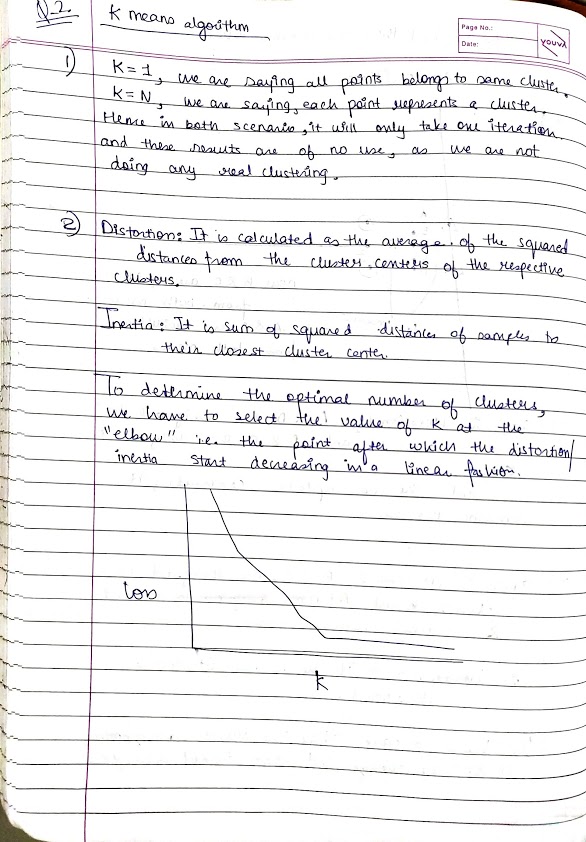 Q-2.
K means algorithm
Page No.:
Date:
YOUVA
1) K = 1, we are saying all points belongs to same cluster.
K = N, we are saying, each point represents a cluster.
Hence in both scenario, it will only take one iteration
and these results are of no use, as we are not
doing any real clustering.
2) Distortion: It is calculated as the average of the squared
distances from the cluster centers of the respective
clusters.
Inertia: It is sum of squared distances of samples to
their closest cluster center.
To determine the optimal number of clusters,
we have to select the value of k at the
"elbow" i.e. the point after which the distortion/
inertia start decreasing in a linear fashion.
Loss
k